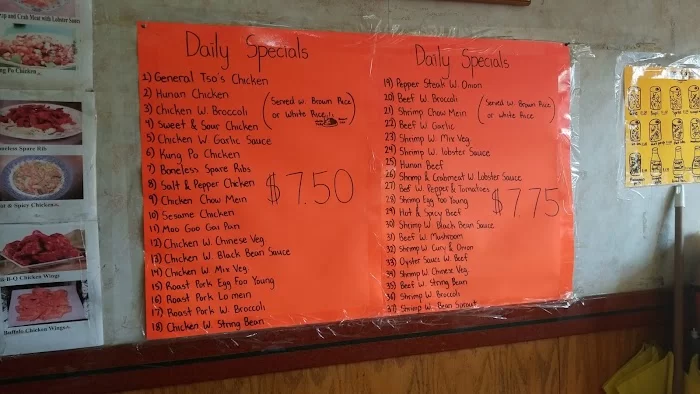 Pop and Crab Meat with Lobster Sauce
Po Chicken
Boneless Spare Rib
& Spicy Chicken
B-B-Q Chicken Wings
Buffalo Chicken Wings
Daily Specials
1) General Tso's Chicken
2) Hunan Chicken
3) Chicken W. Broccoli
4) Sweet & Sour Chicken
5) Chicken W Garlic Sauce
6) Kung Po Chicken
7) Boneless Spare Ribs
8) Salt & Pepper Chicken
9) Chicken Chow Mein
10) Sesame Chicken
11) Moo Goo Gai Pan
12) Chicken W. Chinese Veg.
13) Chicken W. Black Bean Sauce
14) Chicken W Mix Veg.
15) Roast Pork Egg Foo Young
16) Roast Pork Lo mein
17) Roast Pork W. Broccoli
18) Chicken W. String Bean
(Served w. Brown Rice
or White Rice)
$7.50
Daily Specials
19) Pepper Steak W. Onion
20) Beef W. Broccoli
21) Shrimp Chow Mein
22) Beef W. Garlic
23) Shrimp W. Mix Veg.
24) Shrimp W. lobster Sauce
25) Hunan Beef
26) Shrimp & Crabmeat W. Lobster Sauce
27) Beef W. Pepper & Tomatoes
28) Shrimp Egg Foo Young
29) Hot & Spicy Beef
30) Shrimp W. Black Bean Sauce
31) Beef W. Mushroom
32) Shrimp W. Curry & Onion
33) Oyster Sauce W. Beef
34) Shrimp W. Chinese Veg.
35) Beef W. String Bean
36) Shrimp W. Broccoli
37) Shrimp W. Bean Sprout
(Served w. Brown Rice
or white Rice)
$7.75